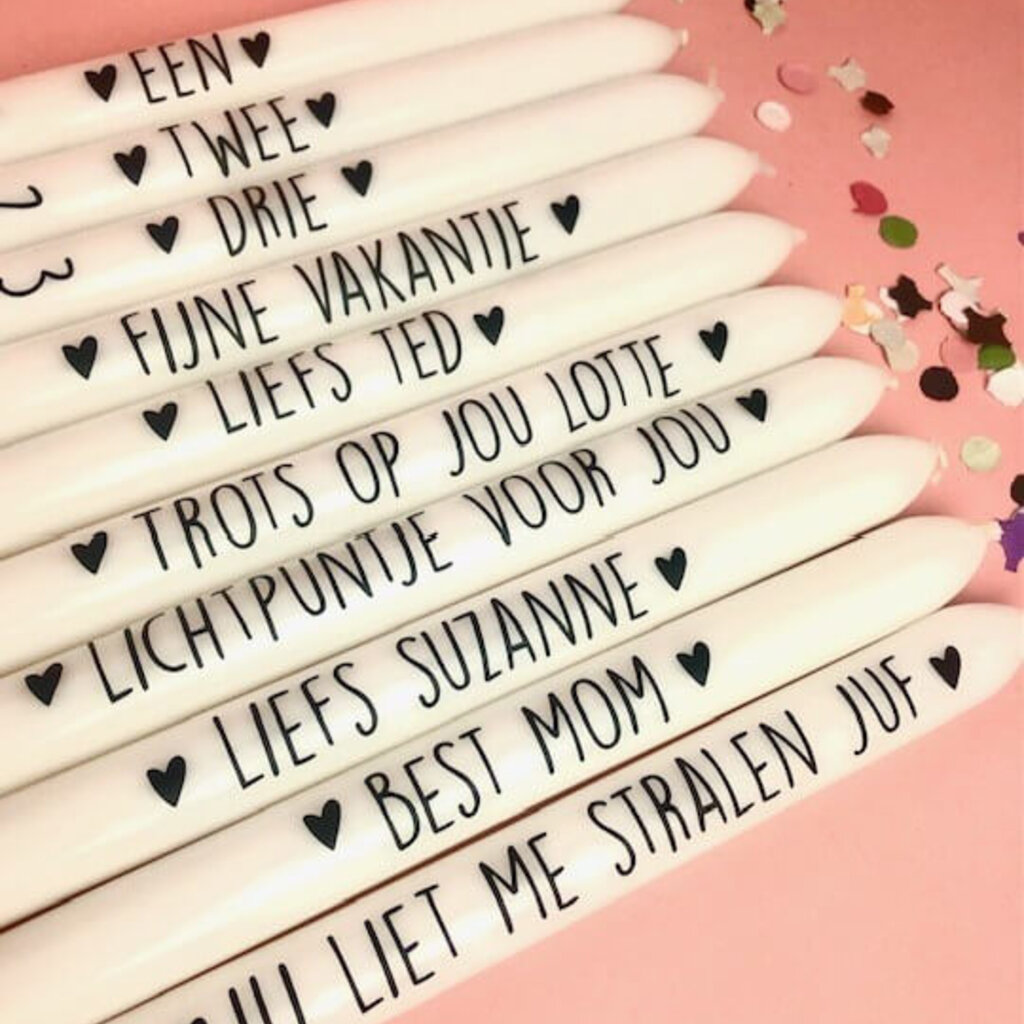 ♥ EEN ♥
♥ TWEE ♥
2
♥ DRIE ♥
3
♥ FIJNE VAKANTIE ♥
♥ LIEFS TED ♥
♥ TROTS OP JOU LOTTE ♥
♥ LICHTPUNTJE VOOR JOU ♥
♥ LIEFS SUZANNE ♥
♥ BEST MOM ♥
JIJ LIET ME STRALEN JUF ♥